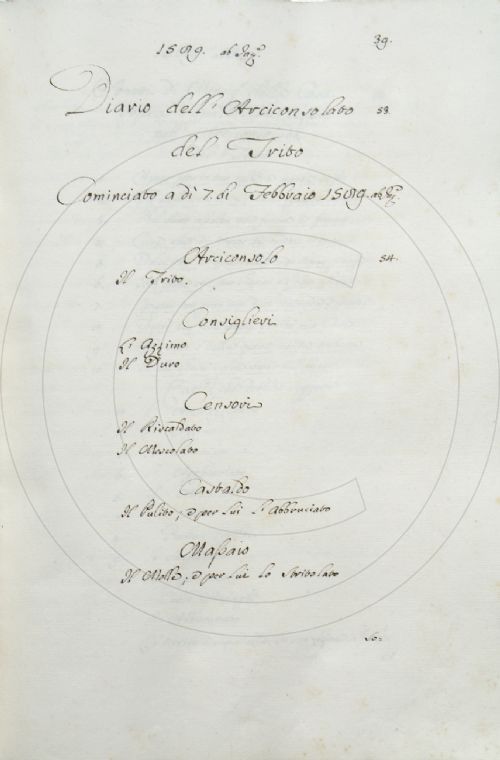 39.
1589. ab Inc.ne
Diario dell' Arciconsolato 53.
del Trito
Cominciato a dì 7. di Febbraio 1589. ab Inc.ne
Arciconsolo 54.
Il Trito.
Consiglieri
L' Azzimo
Il Duro
Censori
Il Riscaldato
Il Mescolato
Castaldo
Il Pulito, e per lui l' Abbruciato
Massaio
Il Molle, e per lui lo Stritolato
So=